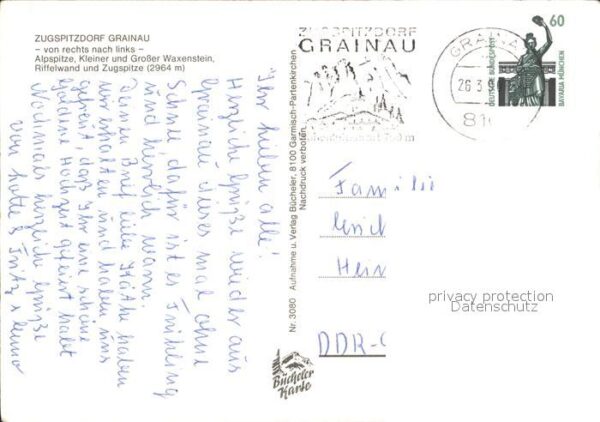 ZUGSPITZDORF GRAINAU
– von rechts nach links –
Alpspitze, Kleiner und Großer Waxenstein,
Riffelwand und Zugspitze (2964 m)
Ihr lieben alle!
Herzliche Grüße wieder aus
Grainau dieses mal ohne
Schnee, dafür ist es Frühling
und herrlich warm.
Deinen Brief liebe Käthe haben
wir erhalten und haben uns
gefreut, daß Ihr eine schöne
goldene Hochzeit gefeiert habt
Nochmals herzliche Grüße
von Lotte & Fritz
Nr. 3080 Aufnahme u. Verlag Bücheler, 8100 Garmisch-Partenkirchen
Nachdruck verboten.
Bücheler
Karte
ZUGSPITZDORF
GRAINAU
GRAINA
26.3
810
60
DEUTSCHE BUNDESPOST
BAVARIA MÜNCHEN
Famili
Hein
DDR-
privacy protection
Datenschutz